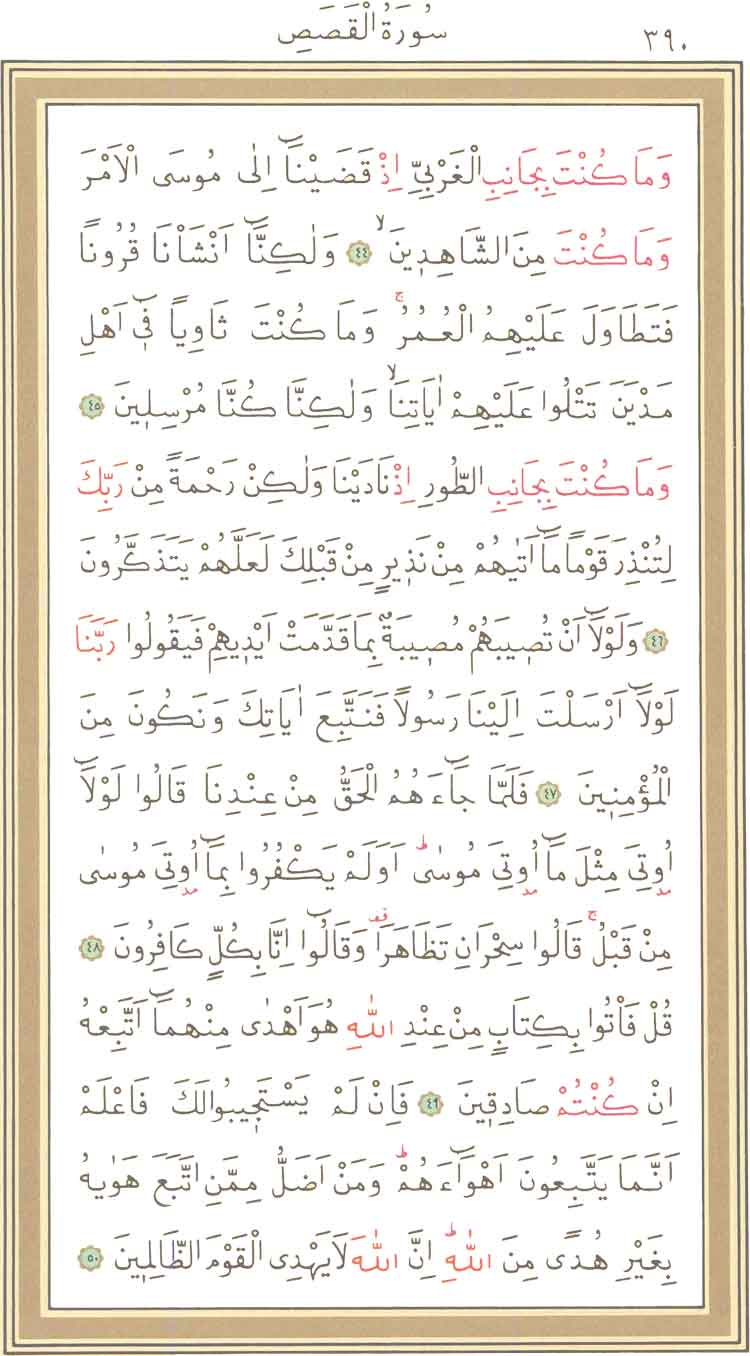 سُورَةُ الْقَصَصِ ٣٩٠
وَمَا كُنْتَ بِجَانِبِ الْغَرْبِيِّ اِذْ قَضَيْنَٓا اِلٰى مُوسَى الْاَمْرَ
وَمَا كُنْتَ مِنَ الشَّاهِد۪ينَۙ ﴿٤٤﴾ وَلٰكِنَّٓا اَنْشَأْنَا قُرُونًا
فَتَطَاوَلَ عَلَيْهِمُ الْعُمُرُۚ وَمَا كُنْتَ ثَاوِيًا ف۪ٓي اَهْلِ
مَدْيَنَ تَتْلُوا عَلَيْهِمْ اٰيَاتِنَاۙ وَلٰكِنَّا كُنَّا مُرْسِل۪ينَ ﴿٤٥﴾
وَمَا كُنْتَ بِجَانِبِ الطُّورِ اِذْ نَادَيْنَا وَلٰكِنْ رَحْمَةً مِنْ رَبِّكَ
لِتُنْذِرَ قَوْمًا مَٓا اَتٰيهُمْ مِنْ نَذ۪يرٍ مِنْ قَبْلِكَ لَعَلَّهُمْ يَتَذَكَّرُونَ
﴿٤٦﴾ وَلَوْلَٓا اَنْ تُص۪يبَهُمْ مُص۪يبَةٌ بِمَا قَدَّمَتْ اَيْد۪يهِمْ فَيَقُولُوا رَبَّنَا
لَوْلَٓا اَرْسَلْتَ اِلَيْنَا رَسُولًا فَنَتَّبِعَ اٰيَاتِكَ وَنَكُونَ مِنَ
الْمُؤْمِن۪ينَ ﴿٤٧﴾ فَلَمَّا جَٓاءَهُمُ الْحَقُّ مِنْ عِنْدِنَا قَالُوا لَوْلَٓا
اُو۫تِيَ مِثْلَ مَٓا اُو۫تِيَ مُوسٰىۜ اَوَلَمْ يَكْفُرُوا بِمَٓا اُو۫تِيَ مُوسٰى
مِنْ قَبْلُۚ قَالُوا سِحْرَانِ تَظَاهَرَا۠ وَقَالُٓوا اِنَّا بِكُلٍّ كَافِرُونَ ﴿٤٨﴾
قُلْ فَأْتُوا بِكِتَابٍ مِنْ عِنْدِ اللّٰهِ هُوَ اَهْدٰى مِنْهُمَٓا اَتَّبِعْهُ
اِنْ كُنْتُمْ صَادِق۪ينَ ﴿٤٩﴾ فَاِنْ لَمْ يَسْتَج۪يبُوا لَكَ فَاعْلَمْ
اَنَّمَا يَتَّبِعُونَ اَهْوَٓاءَهُمْۜ وَمَنْ اَضَلُّ مِمَّنِ اتَّبَعَ هَوٰيهُ
بِغَيْرِ هُدًى مِنَ اللّٰهِۜ اِنَّ اللّٰهَ لَا يَهْدِى الْقَوْمَ الظَّالِم۪ينَ ﴿٥٠﴾